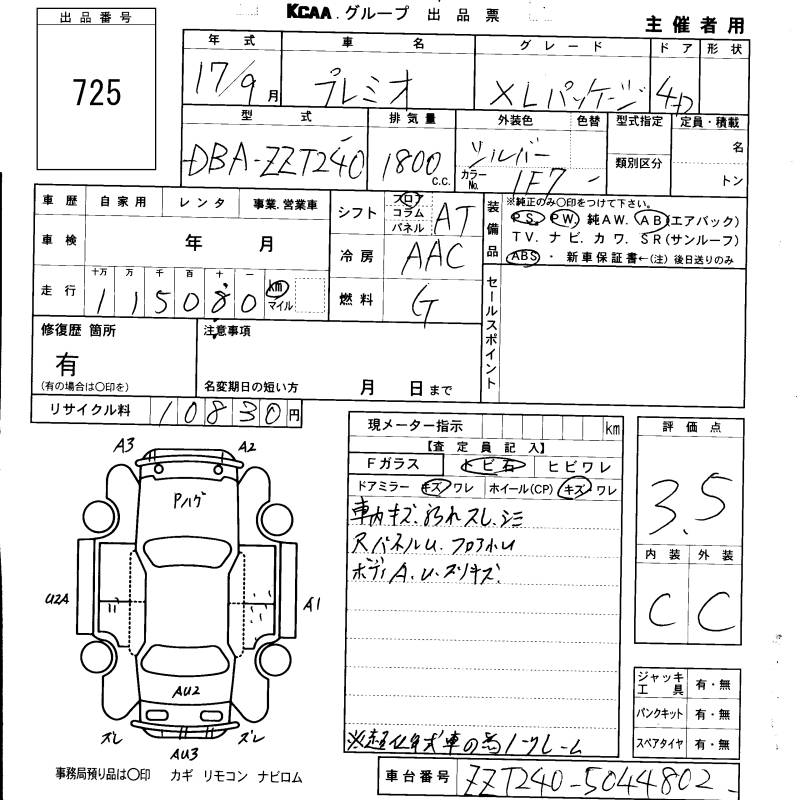 KCAA.グループ 出品票
主催者用
出品番号
725
年式 車名 グレード ドア 形状
17/9月 プレミオ XLパッケージ 4D
型式 排気量 外装色 色替 型式指定 定員・積載
DBA-ZZT240 1800 c.c. シルバー
カラーNo. 1F7 類別区分 名
トン
車歴 自家用 レンタ 事業.営業車
車検 年 月
走行 十万 万 千 百 十 一
115080 km マイル
シフト フロア コラム パネル AT
冷房 AAC
燃料 G
装備品
※純正のみ〇印をつけて下さい。
PS. PW. 純AW. AB(エアバック)
TV. ナビ. カワ. SR(サンルーフ)
ABS ・ 新車保証書←(注)後日送りのみ
セールスポイント
修復歴 箇所
有
(有の場合は〇印を)
注意事項
名変期日の短い方 月 日まで
リサイクル料 10830円
A3 A2
Pハゲ
U2A A1
AU2
ズレ AU3 ズレ
事務局預り品は〇印 カギ リモコン ナビロム
現メーター指示 km
【査定員記入】
Fガラス トビ石 ヒビワレ
ドアミラー キズ・ワレ ホイール(CP) キズ・ワレ
車内キズ.汚れスレ.シミ
RパネルU.フロアホU
ボディA.U.スリキズ.
※超低年式車の為ノークレーム
評価点
3.5
内装 外装
C C
ジャッキ工具 有・無
パンクキット 有・無
スペアタイヤ 有・無
車台番号 ZZT240-5044802